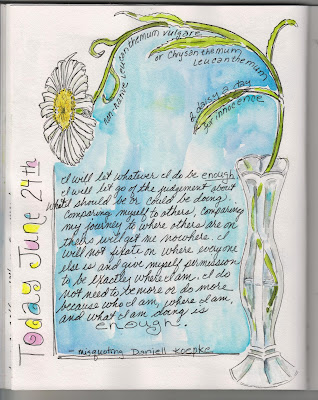 non-native Leucanthemum vulgare
or Chrysanthemum
leucanthemum
A daisy a day
for innocence
Today June 24th
I will let whatever I do be enough.
I will let go of the judgement about
what I should be or could be doing.
Comparing myself to others, comparing
my journey to where others are on
theirs will get me nowhere. I
will not fixate on where everyone
else is and give myself permission
to be exactly where I am. I do
not need to be more or do more
because who I am, where I am,
and what I am doing is
enough.
- misquoting Daniell Koepke